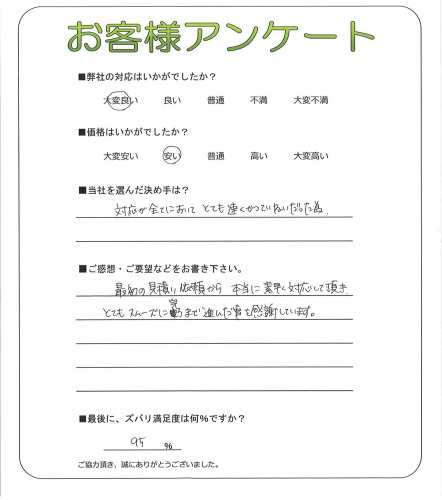 お客様アンケート
■弊社の対応はいかがでしたか？
大変良い 良い 普通 不満 大変不満
■価格はいかがでしたか？
大変安い 安い 普通 高い 大変高い
■当社を選んだ決め手は？
対応が全てにおいて とても速くかつていねいだった為.
■ご感想・ご要望などをお書き下さい。
最初の見積り依頼から 本当に素早く対応して頂き
とてもスムーズに完了まで進んだ事を感謝しています。
■最後に、ズバリ満足度は何%ですか？
95 %
ご協力頂き、誠にありがとうございました。